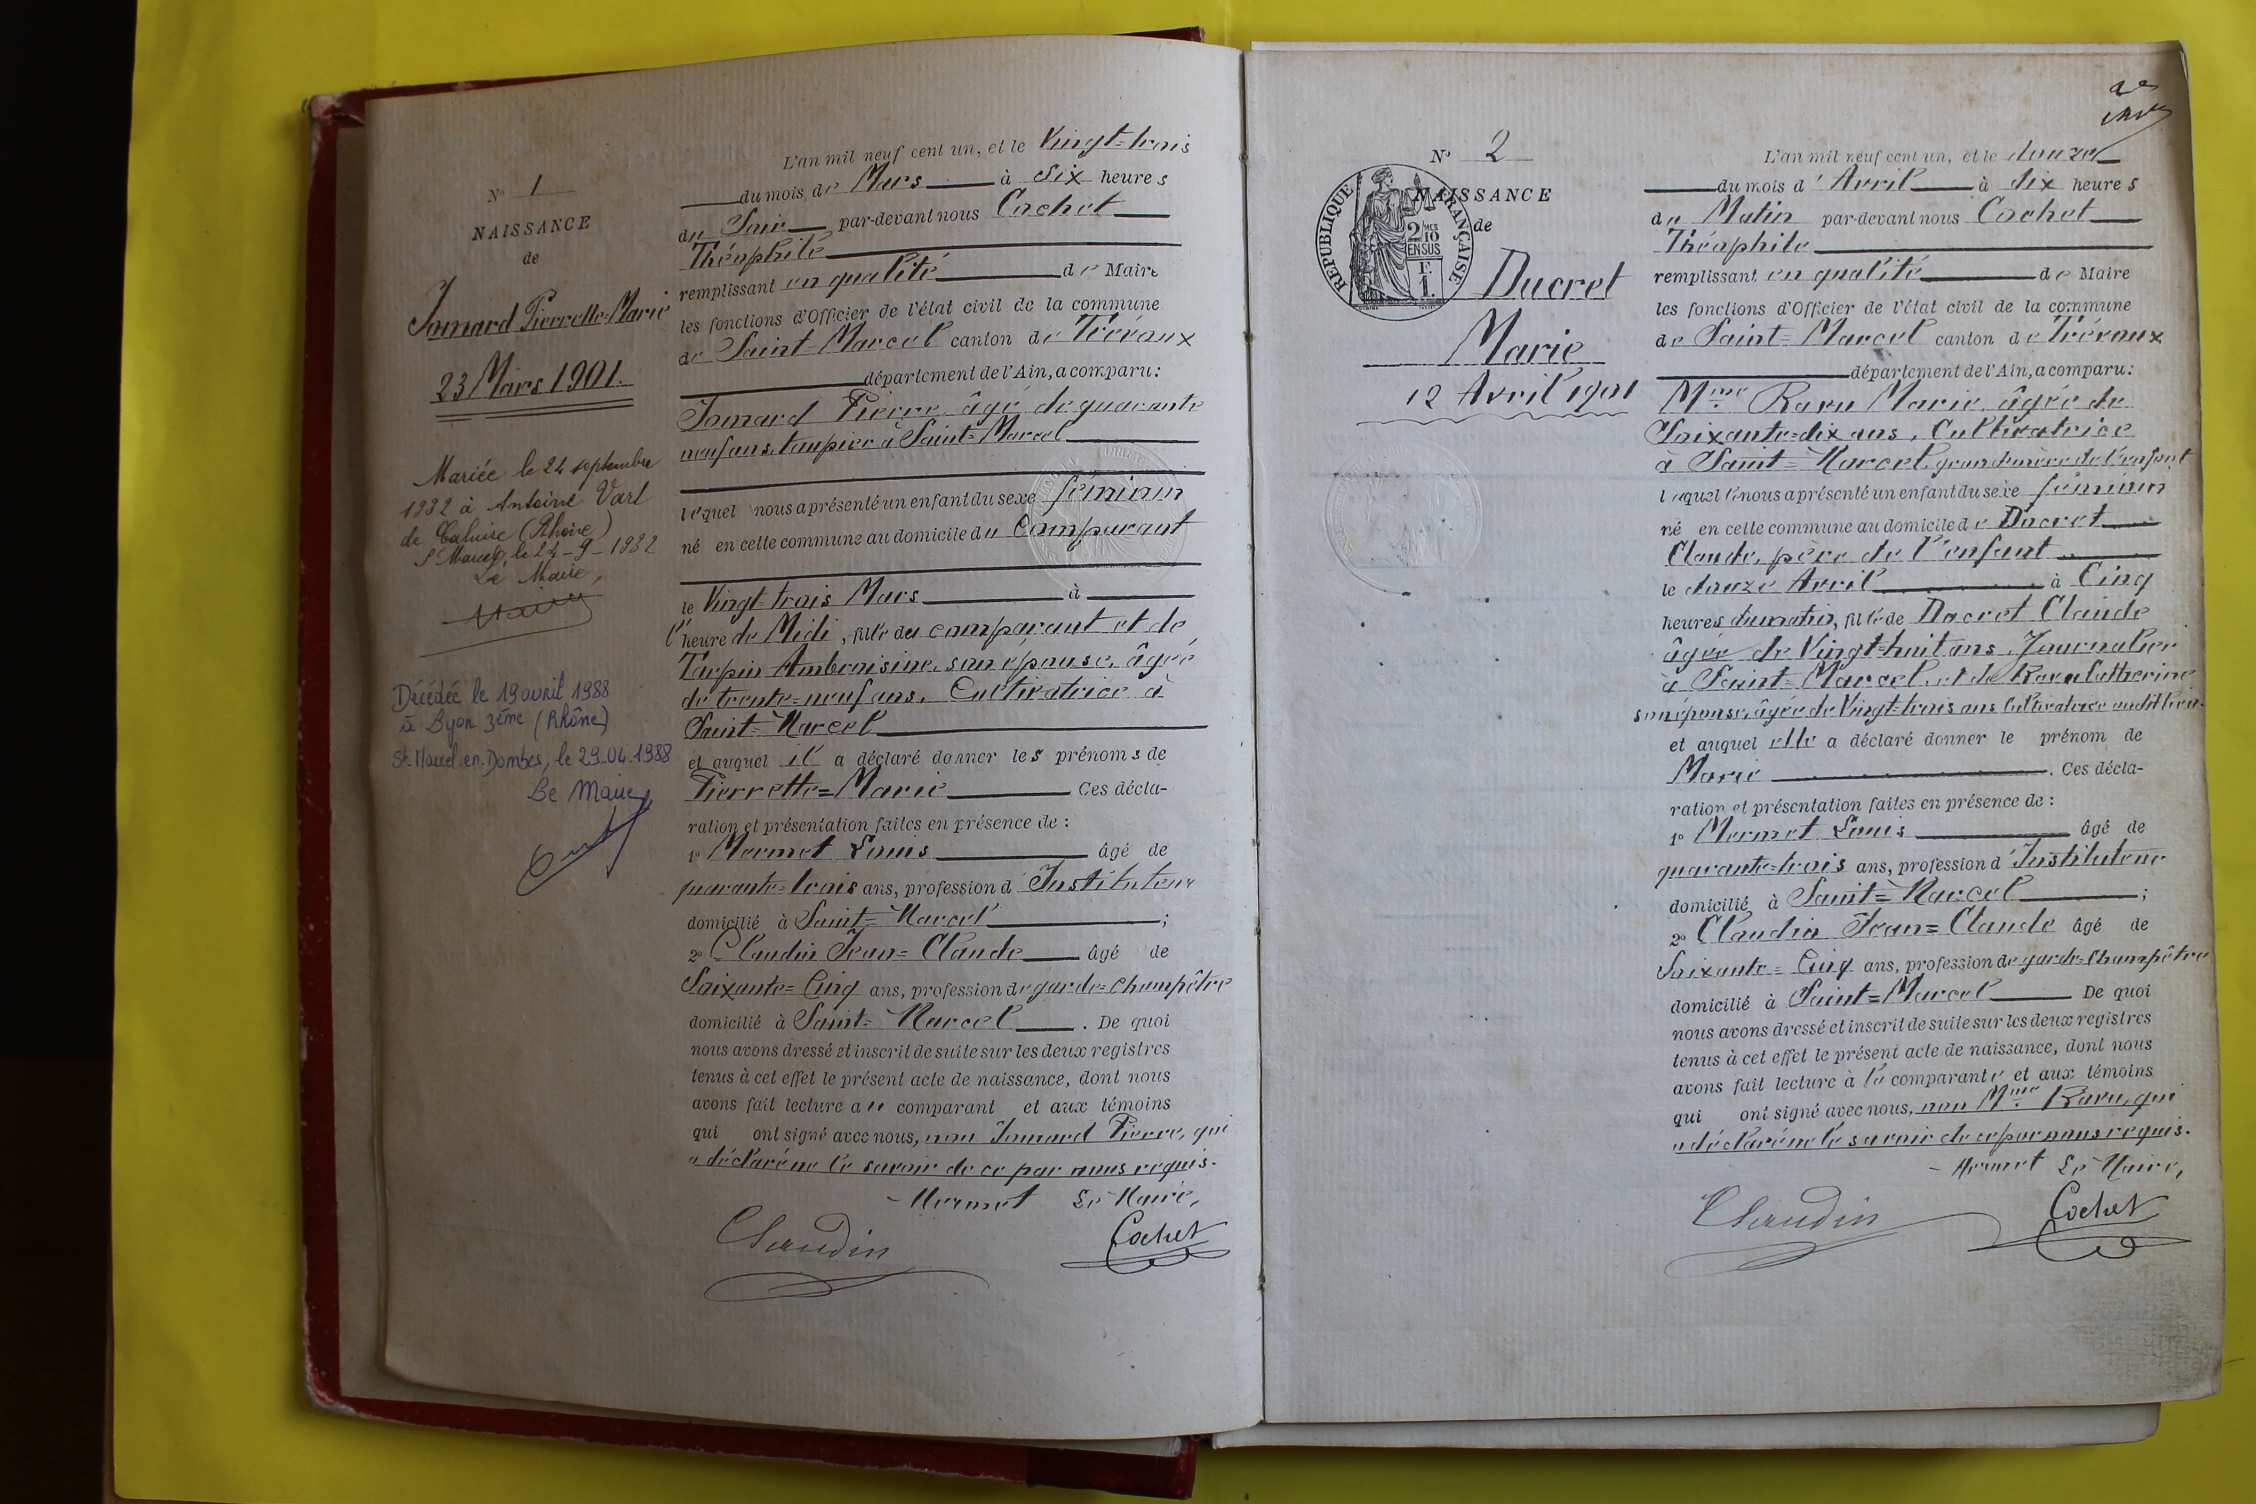 N° 1
NAISSANCE
de
Jomard Pierrette-Marie
23 Mars 1901.
Mariée le 24 septembre
1932 à Antoine
de Caluire (Rhône)
St Marcel, le 24-9-1932
Le Maire,
Décédée le 19 avril 1988
à Lyon 3ème (Rhône)
St-Marcel-en-Dombes, le 29.04.1988
Le Maire
L'an mil neuf cent un, et le Vingt=trois
du mois de Mars à Six heures
du Soir par-devant nous Cochet
Théophile
remplissant en qualité de Maire
les fonctions d'Officier de l'état civil de la commune
de Saint=Marcel canton de Trévoux
département de l'Ain, a comparu:
Jomard Pierre âgé de quarante
neuf ans, taupier à Saint=Marcel
lequel nous a présenté un enfant du sexe féminin
né en cette commune au domicile du Comparant
le Vingt=trois Mars à
l'heure de Midi, fille du comparant et de
Turpin Ambroisine, son épouse, âgée
de trente=neuf ans, Cultivatrice à
Saint=Marcel
et auquel il a déclaré donner les prénoms de
Pierrette=Marie Ces décla-
ration et présentation faites en présence de:
1° Mermet Louis âgé de
quarante=trois ans, profession d'Instituteur
domicilié à Saint=Marcel ;
2° Claudin Jean=Claude âgé de
Soixante=Cinq ans, profession de garde=champêtre
domicilié à Saint=Marcel. De quoi
nous avons dressé et inscrit de suite sur les deux registres
tenus à cet effet le présent acte de naissance, dont nous
avons fait lecture au comparant et aux témoins
qui ont signé avec nous, non Jomard Pierre, qui
a déclaré ne le savoir de ce par nous requis.
Mermet Le Maire,
Claudin Cochet
2e
N° 2
NAISSANCE
de
RÉPUBLIQUE FRANÇAISE
2/10 EN SUS
Ducret
Marie
12 Avril 1901
L'an mil neuf cent un, et le douze
du mois d'Avril à dix heures
du Matin par-devant nous Cochet
Théophile
remplissant en qualité de Maire
les fonctions d'Officier de l'état civil de la commune
de Saint=Marcel canton de Trévoux
département de l'Ain, a comparu:
Mme Ravu Marie âgée de
Soixante=dix ans, Cultivatrice
à Saint=Marcel, grand'mère de l'enfant
laquelle nous a présenté un enfant du sexe féminin
né en cette commune au domicile de Ducret
Claude, père de l'enfant
le douze Avril à Cinq
heures du matin, fille de Ducret Claude
âgé de Vingt=huit ans, Journalier
à Saint=Marcel, et de Ravu Catherine
son épouse, âgée de Vingt=trois ans Cultivatrice audit lieu.
et auquel elle a déclaré donner le prénom de
Marie. Ces décla-
ration et présentation faites en présence de:
1° Mermet Louis âgé de
quarante=trois ans, profession d'Instituteur
domicilié à Saint=Marcel ;
2° Claudin Jean=Claude âgé de
Soixante=Cinq ans, profession de garde=champêtre
domicilié à Saint=Marcel De quoi
nous avons dressé et inscrit de suite sur les deux registres
tenus à cet effet le présent acte de naissance, dont nous
avons fait lecture à la comparante et aux témoins
qui ont signé avec nous, non Mme Ravu, qui
a déclaré ne le savoir de ce par nous requis.
Mermet Le Maire,
Claudin Cochet